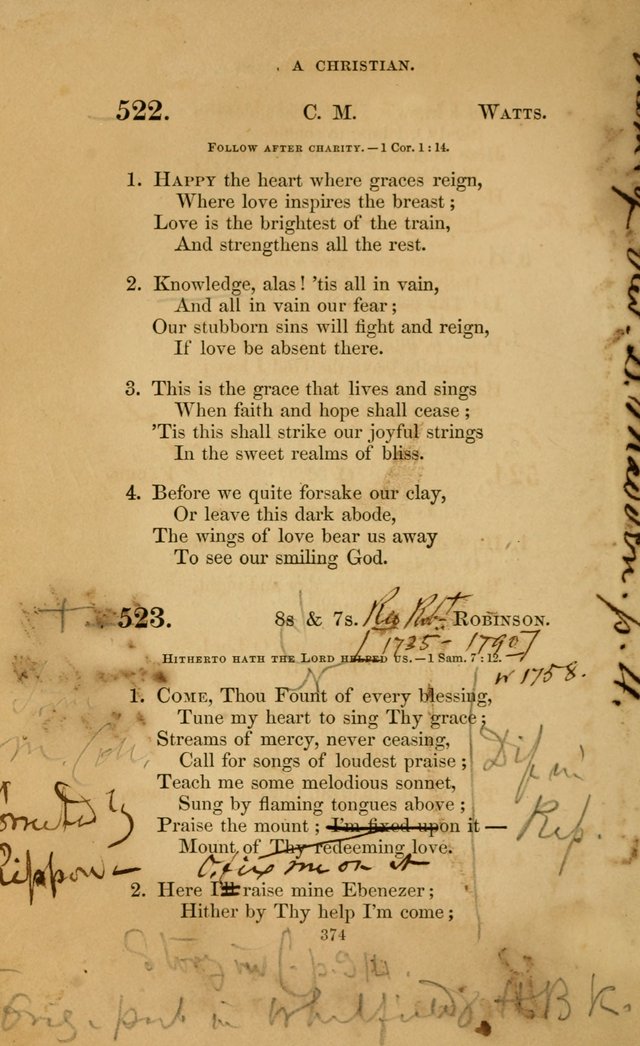 A CHRISTIAN.
522. C. M. WATTS.
FOLLOW AFTER CHARITY.—1 Cor. 1:14.
1. HAPPY the heart where graces reign,
Where love inspires the breast;
Love is the brightest of the train,
And strengthens all the rest.
2. Knowledge, alas! 'tis all in vain,
And all in vain our fear;
Our stubborn sins will fight and reign,
If love be absent there.
3. This is the grace that lives and sings
When faith and hope shall cease;
'Tis this shall strike our joyful strings
In the sweet realms of bliss.
4. Before we quite forsake our clay,
Or leave this dark abode,
The wings of love bear us away
To see our smiling God.
p. 4.
523. 8s & 7s. Rev Robt ROBINSON.
[1735-1790]
HITHERTO HATH THE LORD HELPED US.—1 Sam. 7:12.
w 1758.
1. COME, Thou Fount of every blessing,
Tune my heart to sing Thy grace;
Streams of mercy, never ceasing,
Call for songs of loudest praise;
Teach me some melodious sonnet,
Sung by flaming tongues above;
Praise the mount; I'm fixed upon it—
Mount of Thy redeeming love.
O, fix me on it
Dif in
Rep.
by
Rippon—
2. Here I'll raise mine Ebenezer;
Hither by Thy help I'm come;
374
p. 314.
Orig. pub in Whitfield's H B K.